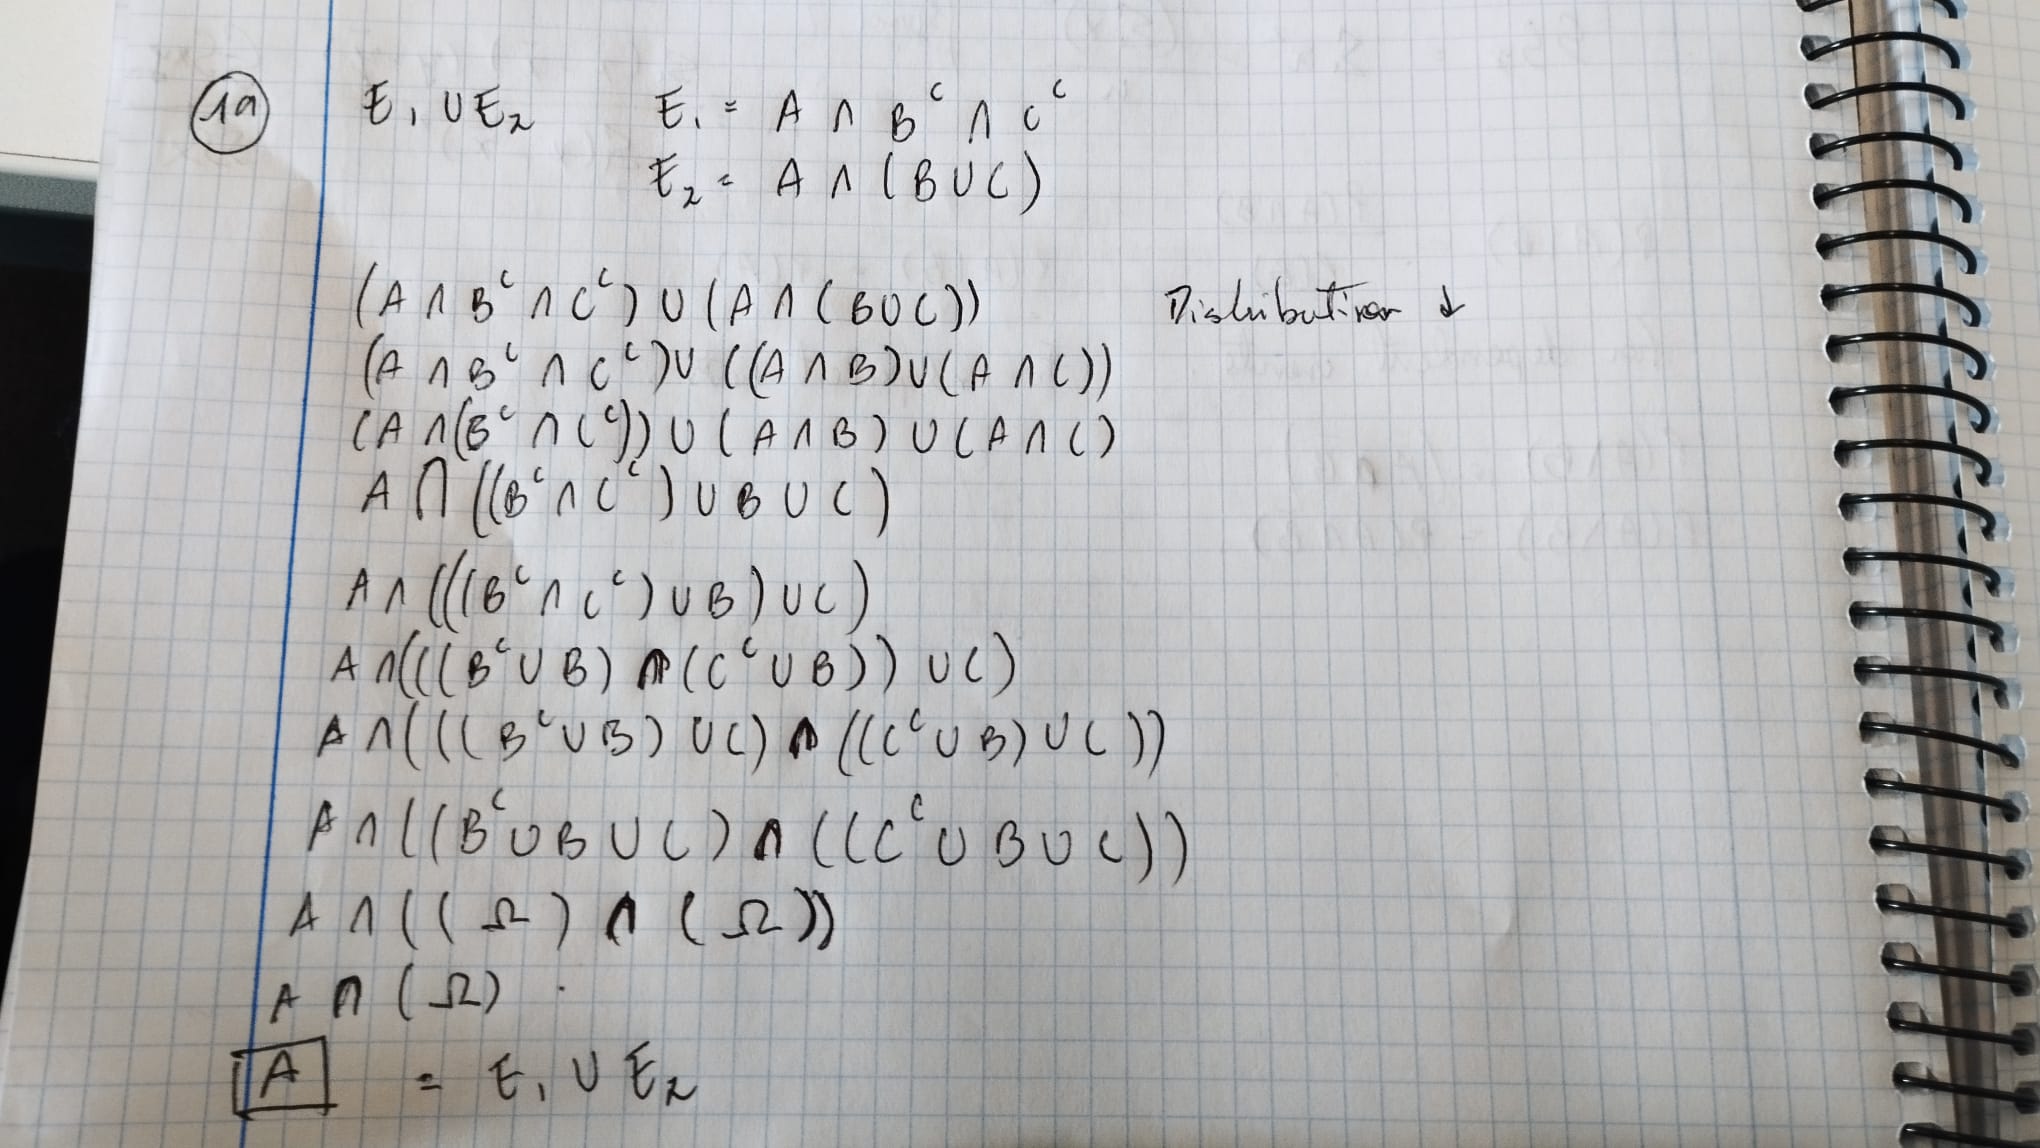 1a E₁ ∪ E₂ E₁ = A ∩ Bᶜ ∩ Cᶜ
E₂ = A ∩ (B ∪ C)
(A ∩ Bᶜ ∩ Cᶜ) ∪ (A ∩ (B ∪ C)) Distribution ↓
(A ∩ Bᶜ ∩ Cᶜ) ∪ ((A ∩ B) ∪ (A ∩ C))
(A ∩ (Bᶜ ∩ Cᶜ)) ∪ (A ∩ B) ∪ (A ∩ C)
A ∩ ((Bᶜ ∩ Cᶜ) ∪ B ∪ C)
A ∩ (((Bᶜ ∩ Cᶜ) ∪ B) ∪ C)
A ∩ (((Bᶜ ∪ B) ∩ (Cᶜ ∪ B)) ∪ C)
A ∩ (((Bᶜ ∪ B) ∪ C) ∩ ((Cᶜ ∪ B) ∪ C))
A ∩ ((Bᶜ ∪ B ∪ C) ∩ ((Cᶜ ∪ B ∪ C))
A ∩ ((Ω) ∩ (Ω))
A ∩ (Ω)
A = E₁ ∪ E₂